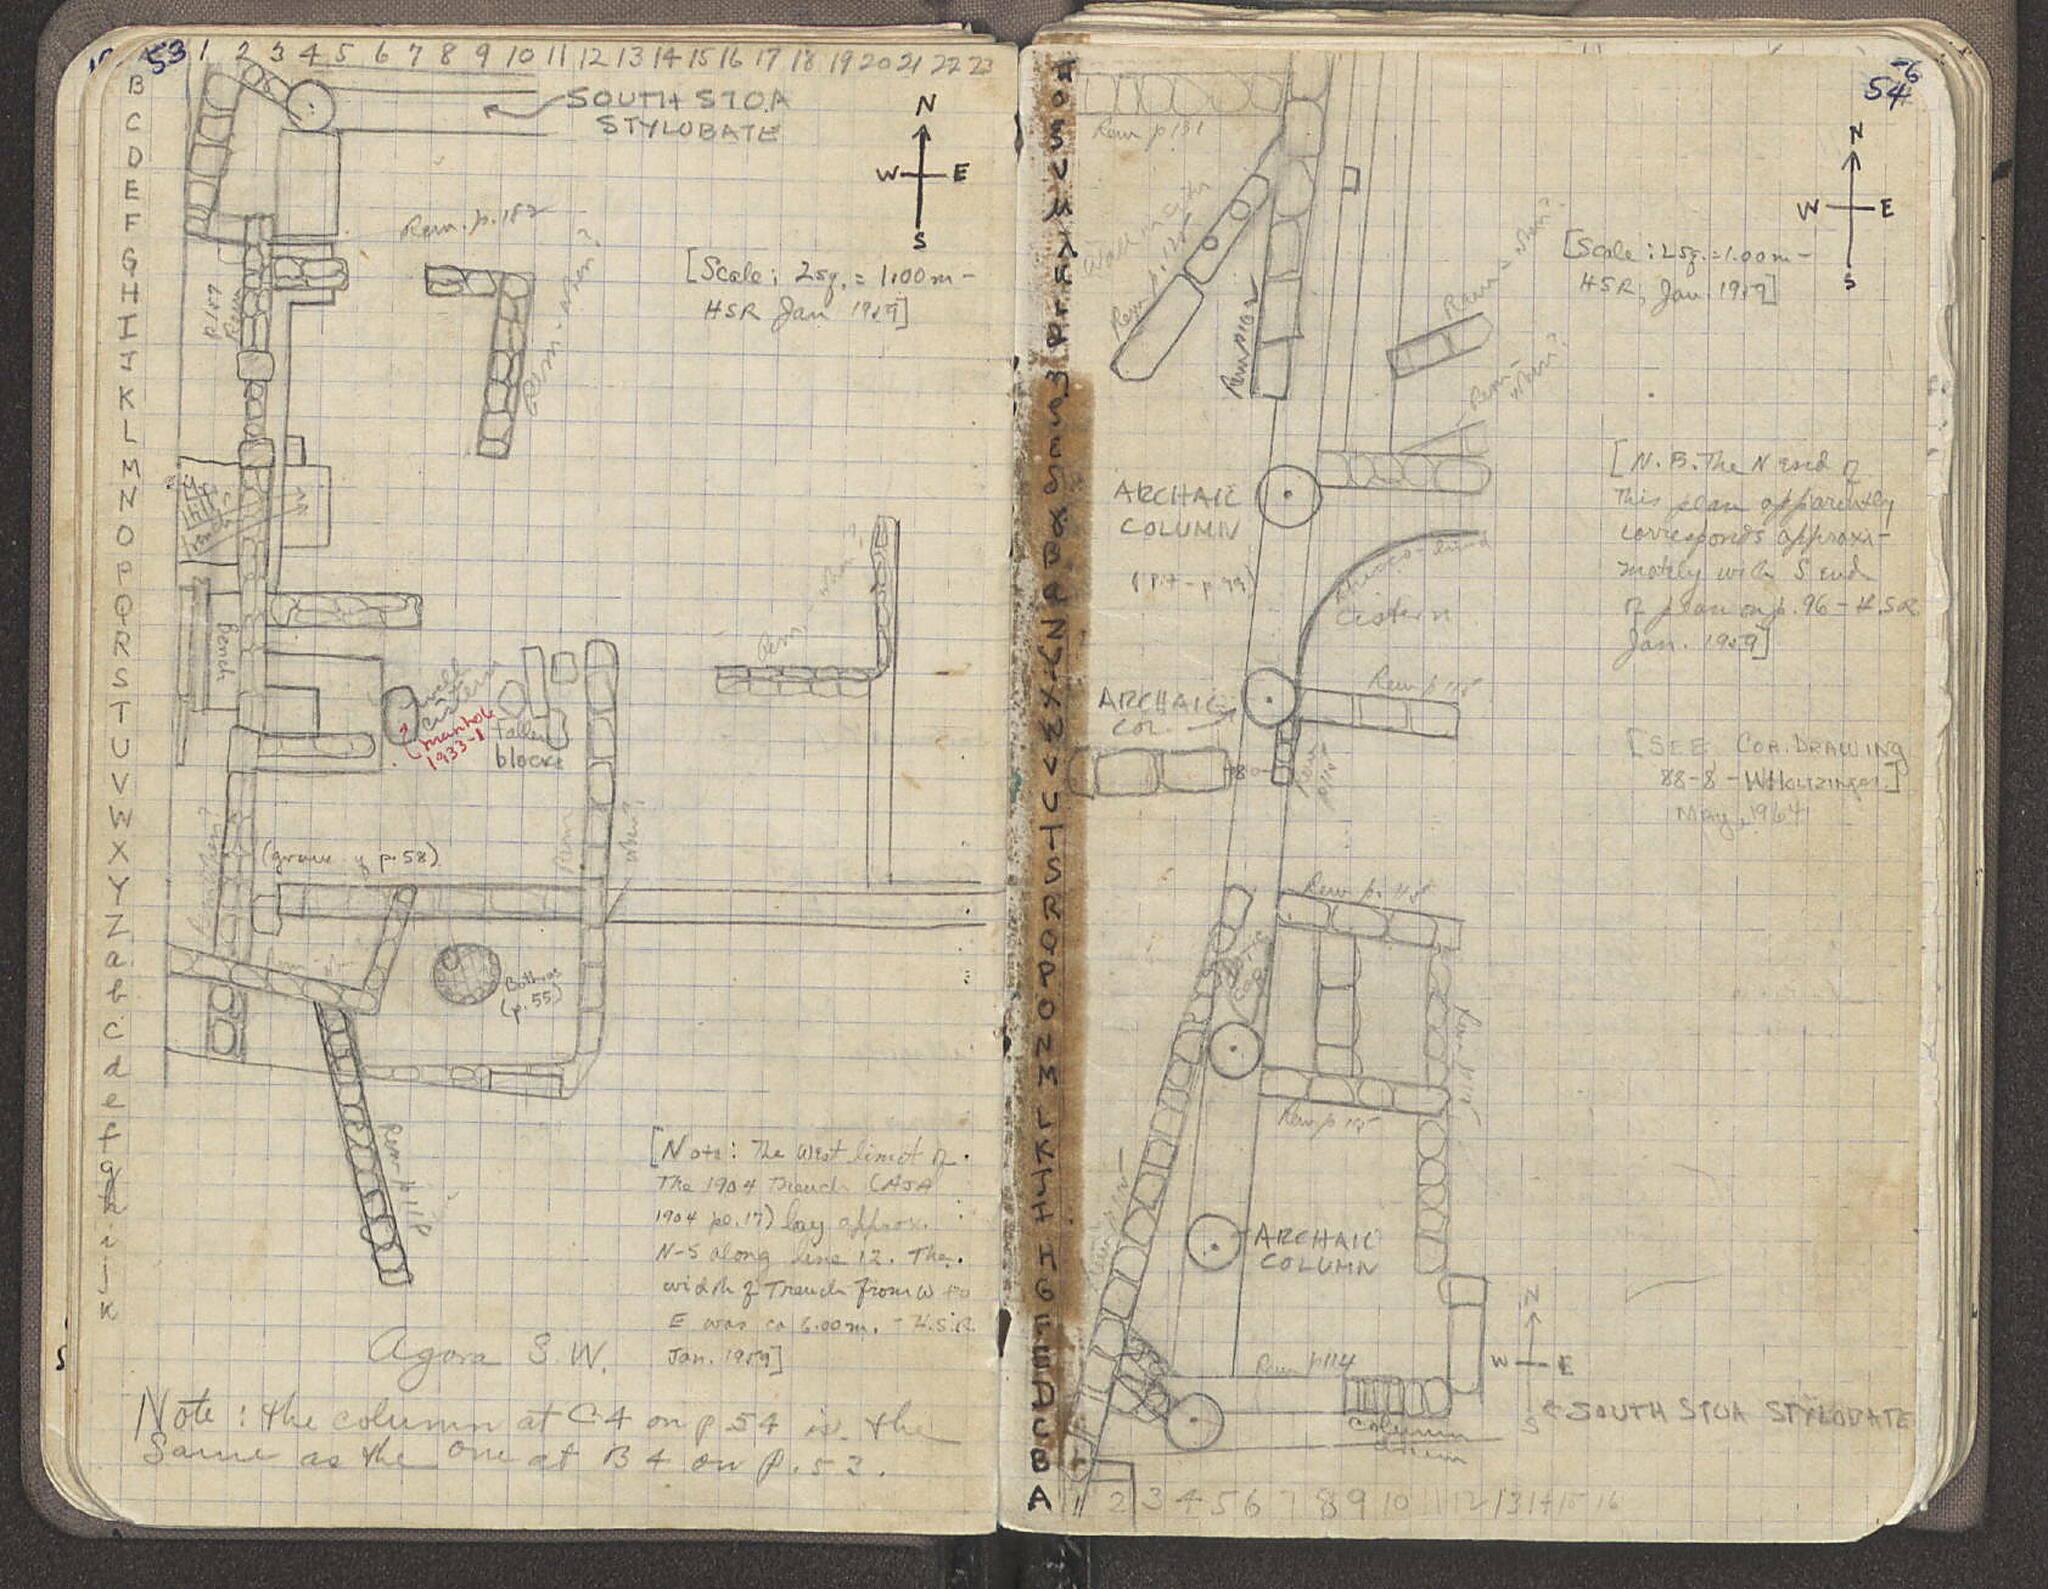 53 1 2 3 4 5 6 7 8 9 10 11 12 13 14 15 16 17 18 19 20 21 22 23
B
C
D
E
F
G
H
I
J
K
L
M
N
O
P
Q
R
S
T
U
V
W
X
Y
Z
a
b
c
d
e
f
g
h
i
j
k
SOUTH STOA
STYLOBATE
N
W E
S
Rem. p. 182
Rem. when?
[Scale: 2sq. = 1.00m -
HSR Jan 1959]
p 187
Rem
Bench
Rem. when?
well
cistern
?
manhole
1933-1
fallen
blocks
Rem
when?
(grave y p. 58)
Bothros
(p. 55)
Rem p 118
[Note: The West limit of
The 1904 Trench (AJA
1904 pl. 17) lay approx.
N-S along line 12. The
width of Trench from W to
E was ca 6.00m. - H.S.R.
Jan. 1959]
Agora S.W.
Note: the column at C4 on p. 54 is the
same as the one at B4 on P. 53.
54
N
W E
S
Rem p 181
Rem p. 125
Rem p 182
[Scale: 2sq. = 1.00m -
HSR, Jan. 1959]
Rem - when?
Rem -
when?
ARCHAIC
COLUMN
(Pit - p. 99)
[N.B. The N end of
This plan apparently
corresponds approxi-
mately with S end
of plan on p. 96 - H.S.R.
Jan. 1959]
stucco-lined
cistern
ARCHAIC
COL.
Rem p 115
Rem
p 115
[SEE COR. DRAWING
88-8 - WHoltzinger]
May, 1964
Rem p. 115
Rem p 115
ARCHAIC
COLUMN
N
W E
S
Rem p 114
Column
drum
SOUTH STOA STYLOBATE
Z
Y
X
W
V
U
T
S
R
Q
P
O
N
M
L
K
J
I
H
G
F
E
D
C
B
A 1 2 3 4 5 6 7 8 9 10 11 12 13 14 15 16